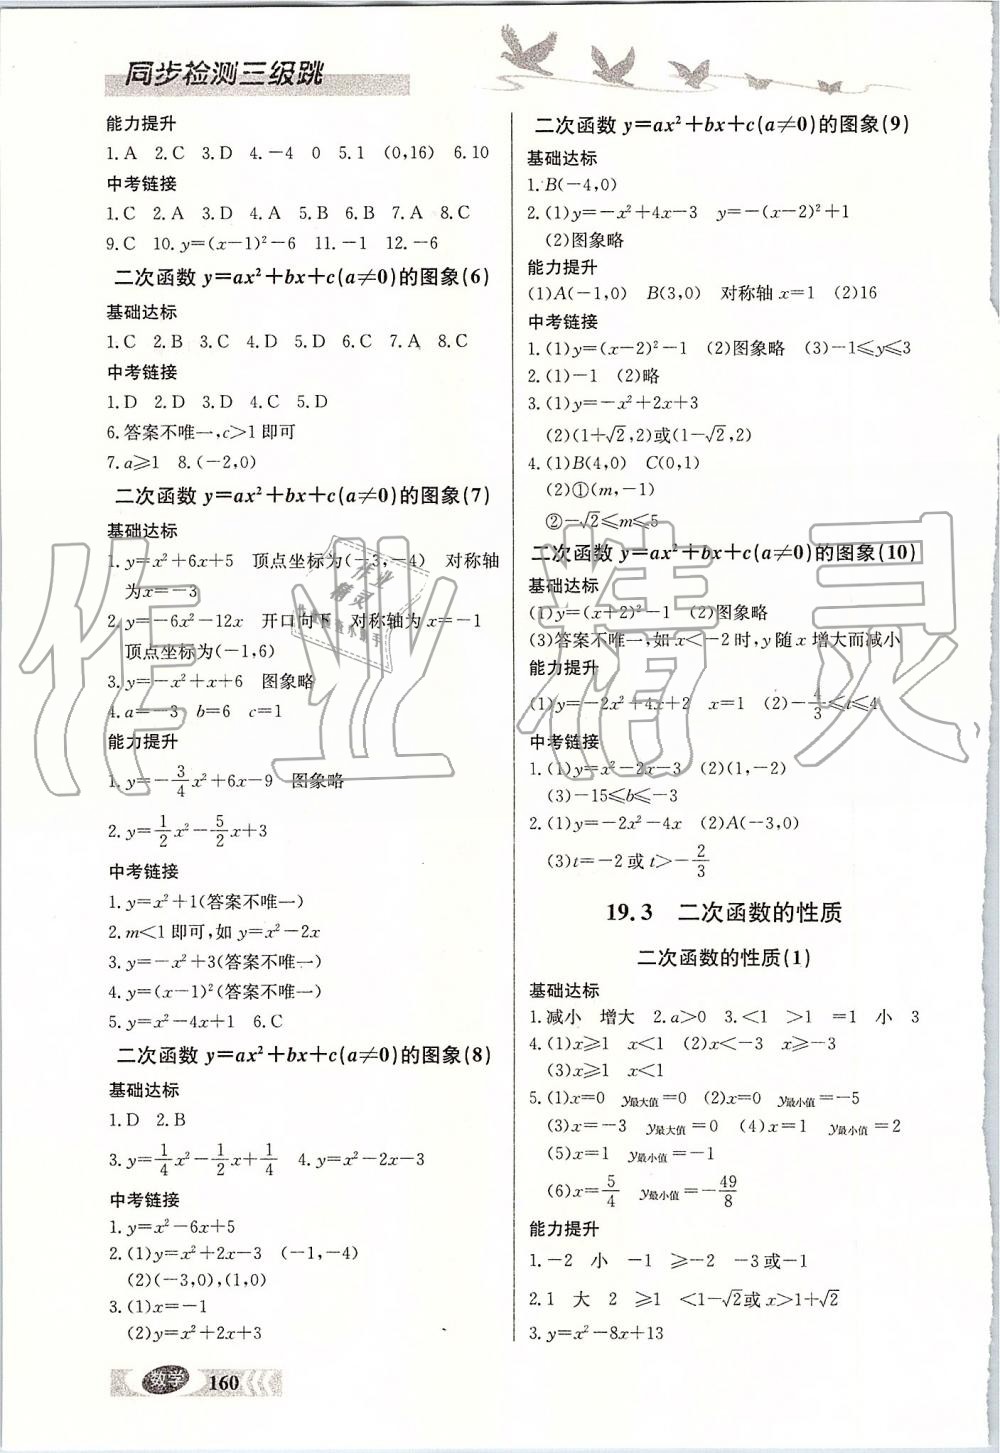 同步检测三级跳
能力提升
1.A 2.C 3.D 4.-4 0 5.1 (0,16) 6.10
中考链接
1.C 2.A 3.D 4.A 5.B 6.B 7.A 8.C
9.C 10.y=(x-1)²-6 11.-1 12.-6
二次函数 y=ax²+bx+c(a≠0)的图象(6)
基础达标
1.C 2.B 3.C 4.D 5.D 6.C 7.A 8.C
中考链接
1.D 2.D 3.D 4.C 5.D
6.答案不唯一,c>1即可
7.a⩾1 8.(-2,0)
二次函数 y=ax²+bx+c(a≠0)的图象(7)
基础达标
1.y=x²+6x+5 顶点坐标为(-3,-4) 对称轴
为x=-3
2.y=-6x²-12x 开口向下 对称轴为x=-1
顶点坐标为(-1,6)
3.y=-x²+x+6 图象略
4.a=-3 b=6 c=1
能力提升
1.y=-3/4x²+6x-9 图象略
2.y=1/2x²-5/2x+3
中考链接
1.y=x²+1(答案不唯一)
2.m<1即可,如y=x²-2x
3.y=-x²+3(答案不唯一)
4.y=(x-1)²(答案不唯一)
5.y=x²-4x+1 6.C
二次函数 y=ax²+bx+c(a≠0)的图象(8)
基础达标
1.D 2.B
3.y=1/4x²-1/2x+1/4 4.y=x²-2x-3
中考链接
1.y=x²-6x+5
2.(1)y=x²+2x-3 (-1,-4)
(2)(-3,0),(1,0)
3.(1)x=-1
(2)y=x²+2x+3
数学 160
二次函数 y=ax²+bx+c(a≠0)的图象(9)
基础达标
1.B(-4,0)
2.(1)y=-x²+4x-3 y=-(x-2)²+1
(2)图象略
能力提升
(1)A(-1,0) B(3,0) 对称轴x=1 (2)16
中考链接
1.(1)y=(x-2)²-1 (2)图象略 (3)-1⩽y⩽3
2.(1)-1 (2)略
3.(1)y=-x²+2x+3
(2)(1+√2,2)或(1-√2,2)
4.(1)B(4,0) C(0,1)
(2)①(m,-1)
②-√2⩽m⩽5
二次函数 y=ax²+bx+c(a≠0)的图象(10)
基础达标
(1)y=(x+2)²-1 (2)图象略
(3)答案不唯一,如x<-2时,y随x增大而减小
能力提升
(1)y=-2x²+4x+2 x=1 (2)-4/3⩽t⩽4
中考链接
1.(1)y=x²-2x-3 (2)(1,-2)
(3)-15⩽b⩽-3
2.(1)y=-2x²-4x (2)A(-3,0)
(3)t=-2或t>-2/3
19.3 二次函数的性质
二次函数的性质(1)
基础达标
1.减小 增大 2.a>0 3.<1 >1 =1 小 3
4.(1)x⩾1 x<1 (2)x<-3 x⩾-3
(3)x⩾1 x<1
5.(1)x=0 y最大值=0 (2)x=0 y最小值=-5
(3)x=-3 y最大值=0 (4)x=1 y最小值=2
(5)x=1 y最小值=-1
(6)x=5/4 y最小值=-49/8
能力提升
1.-2 小 -1 ⩾-2 -3或-1
2.1 大 2 ⩾1 <1-√2或x>1+√2
3.y=x²-8x+13
作业精灵